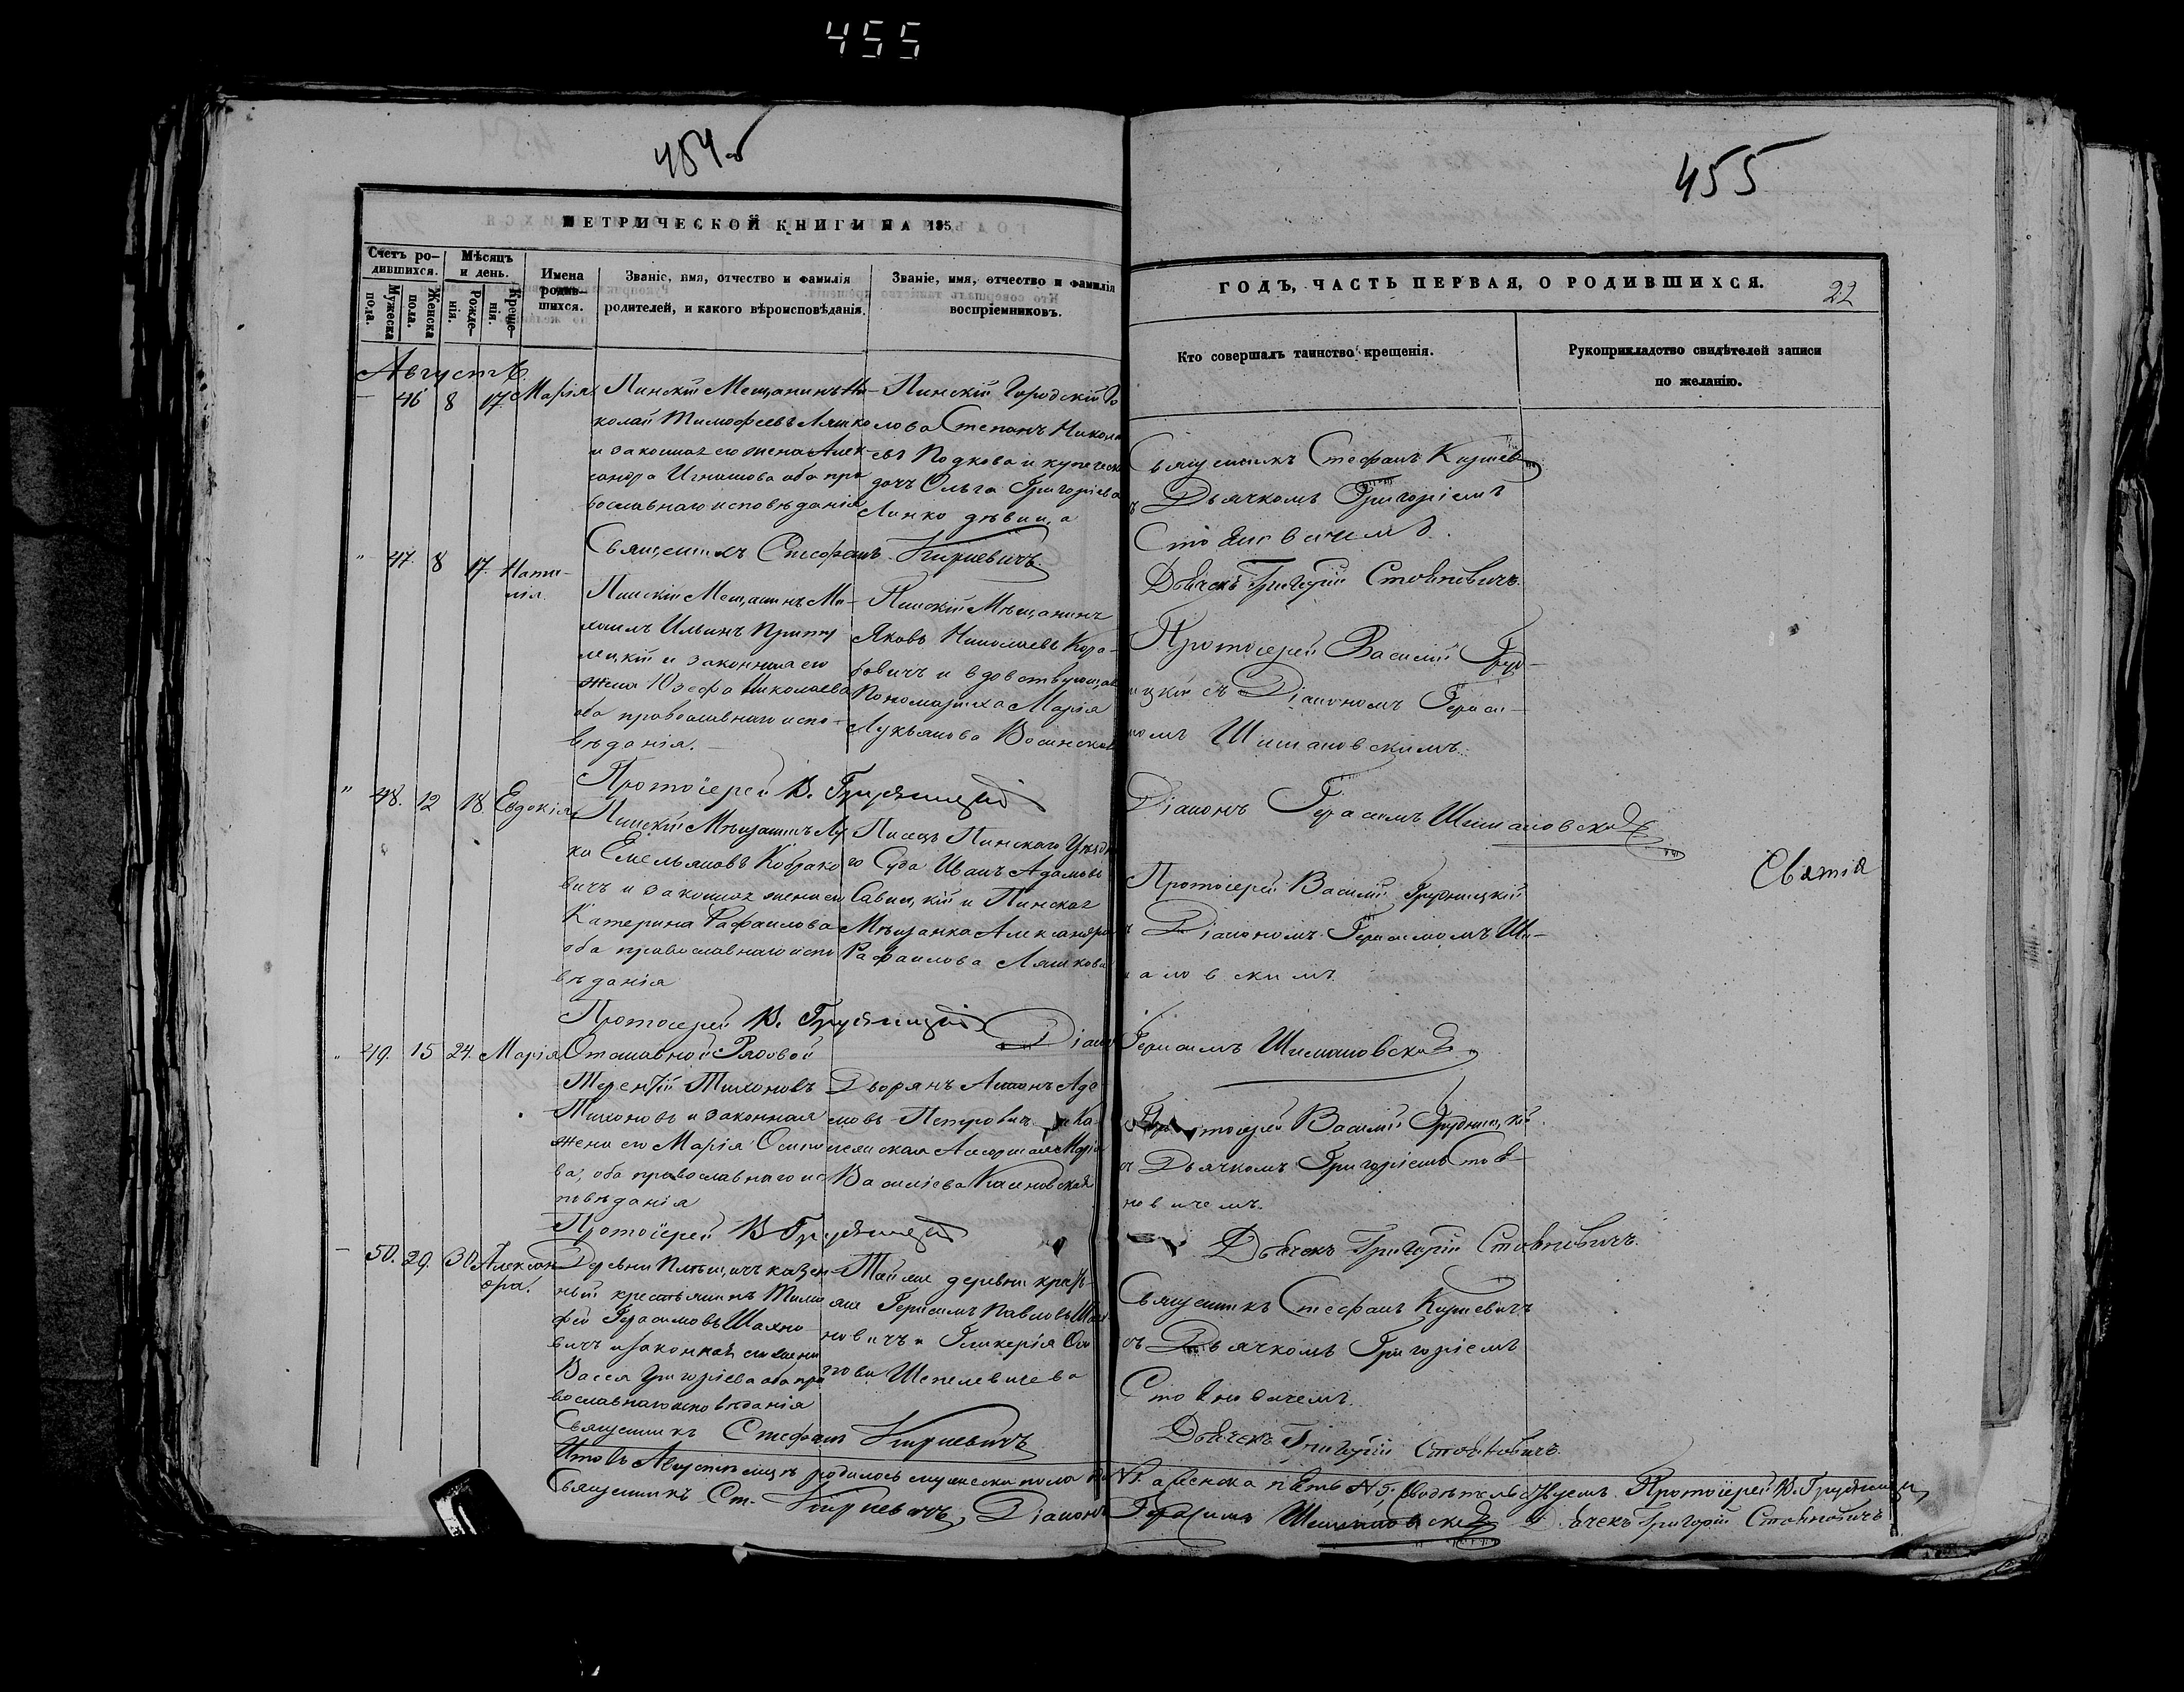 455
454 об
455
МЕТРИЧЕСКОЙ КНИГИ НА 185
ГОДЪ, ЧАСТЬ ПЕРВАЯ, О РОДИВШИХСЯ.
22
Счетъ родившихся.
Мужеска пола.
Женска пола.
Мѣсяцъ и день.
Рожденія.
Крещенія.
Имена родившихся.
Званіе, имя, отчество и фамилія
родителей, и какого вѣроисповѣданія.
Званіе, имя, отчество и фамилія
воспріемниковъ.
Кто совершалъ таинство крещенія.
Рукоприкладство свидѣтелей записи
по желанію.
Августъ
46 8 17 Марія
Пинскій Мещанинъ Ни-
колай Тимофеевъ Ляшко
и законная его жена Алек-
сандра Игнатова оба пра
вославнаго исповѣданія
Пинскій Городскій Го
лова Степанъ Никола
евъ Подкова и купеческа
дочь Ольга Григоріева
Линко дѣвица
Священникъ Стефанъ Киркевич
Дьячкомъ Григоріемъ
Стояновичемъ.
Священникъ Стефанъ Киркевичъ
Дьячекъ Григорій Стояновичъ
47. 8 17. Ната-
лія
Пинскій Мещанинъ Ми-
хаилъ Ильинъ
и законная его
жена Юзефа Николаева
оба православнаго испо-
вѣданія.
Пинскій Мѣщанинъ
Яковъ Николаевъ Кора-
бовичъ и вдовствующая
Пономариха Марія
Лукьянова
Протоіерей Василій Груд-
ницкій съ Діакономъ Гераси-
момъ Шимановскимъ.
Протоіерей В. Грудницкій
Діаконъ Герасимъ Шимановскій
48. 12 18. Евдокія
Пинскій Мѣщанинъ Лу
ка Емельяновъ Кобрако
вичъ и законная жена его
Катерина Рафаилова
оба православнаго испо
вѣданія
Писецъ Пинскаго Уѣздн
го Суда Иванъ Адамовъ
Савицкій и Пинская
Мѣщанка Александра
Рафаилова Ляшкова
Протоіерей Василій Грудницкій
съ Діакономъ Герасимомъ Ши-
мановскимъ
Протоіерей В. Грудницкій
Діаконъ Герасимъ Шимановскій
49. 15 24. Марія
Отставной Рядовой
Терентій Тихоновъ
Тихоновъ и законная
жена его Марія Осипо
ва, оба православнаго ис
повѣданія
Дворянъ Антонъ Ада
мовъ Петровичъ и Ка
Марія
Василіева
Протоіерей Василій Грудницкій
съ Дьячкомъ Григоріемъ Стоя
новичемъ.
Протоіерей В Грудницкій
Дьячекъ Григорій Стояновичъ
50. 29. 30. Алексан
дра.
Деревни казен
ный крестьянинъ Тимо
фей Герасимовъ Шахно
вичъ и законная его жена
Васса Григоріева оба пра
вославнаго исповѣданія
Той же деревни крестья
не Герасимъ Павловъ Шах
новичъ и Гликерія
Шепелевичева
Священникъ Стефанъ Киркевичъ
съ Дьячкомъ Григоріемъ
Стояновичемъ.
Священникъ Стефанъ Киркевичъ
Дьячекъ Григорій Стояновичъ.
Итого въ Августѣ мцѣ родилось мужеска пола а женска пять № 5, свидѣтельствуемъ. Протоіерей В. Грудницкій
Священникъ Ст. Киркевичъ, Діаконъ Герасимъ Шимановскій Дьячекъ Григорій Стояновичъ